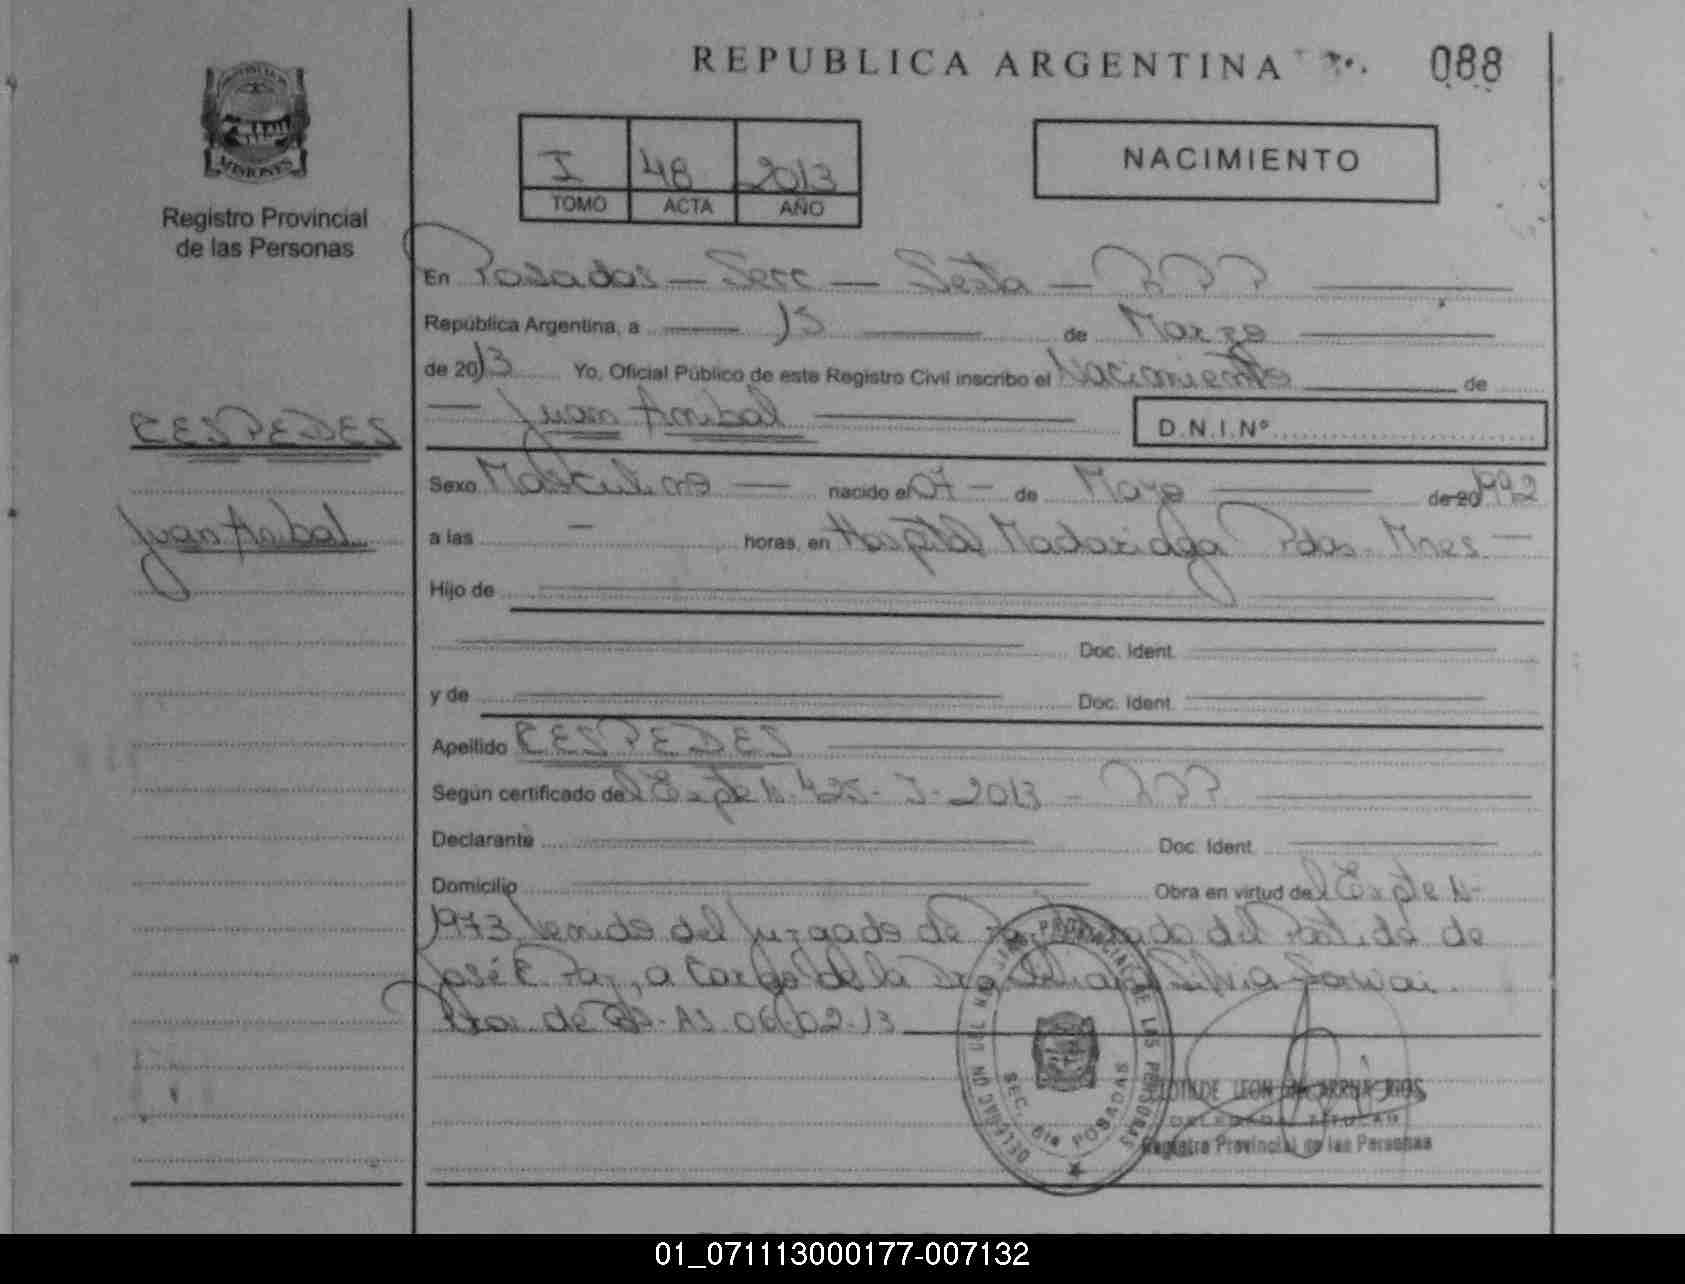 REPUBLICA ARGENTINA
088
PROVINCIA DE
MISIONES
Registro Provincial
de las Personas
I 48 2013
TOMO ACTA AÑO
NACIMIENTO
En Posadas - Secc - Sexta - RPP
República Argentina, a 15 de Marzo
de 2013 Yo, Oficial Público de este Registro Civil inscribo el Nacimiento de
Juan Anibal
D.N.I.Nº
CESPEDES
Juan Anibal
Sexo Masculino - nacido el 07 - de Mayo de 20 1992
a las - horas, en Hospital Madariaga Pdas. Mnes -
Hijo de
Doc. Ident.
y de Doc. Ident.
Apellido CESPEDES
Según certificado del Expte N. 425- J-2013 - RPP
Declarante Doc. Ident.
Domicilio Obra en virtud del Expte N-
1973 venido del Juzgado de Paz del Partido de
José C. Paz, a Cargo de la Dra. Silvia
de Bs-As 06/02-13
DELEGACION DEL REGISTRO PROVINCIAL DE LAS PERSONAS
SEC. 6ta POSADAS
LEON
DELEGADO TITULAR
Registro Provincial de las Personas
01_071113000177-007132